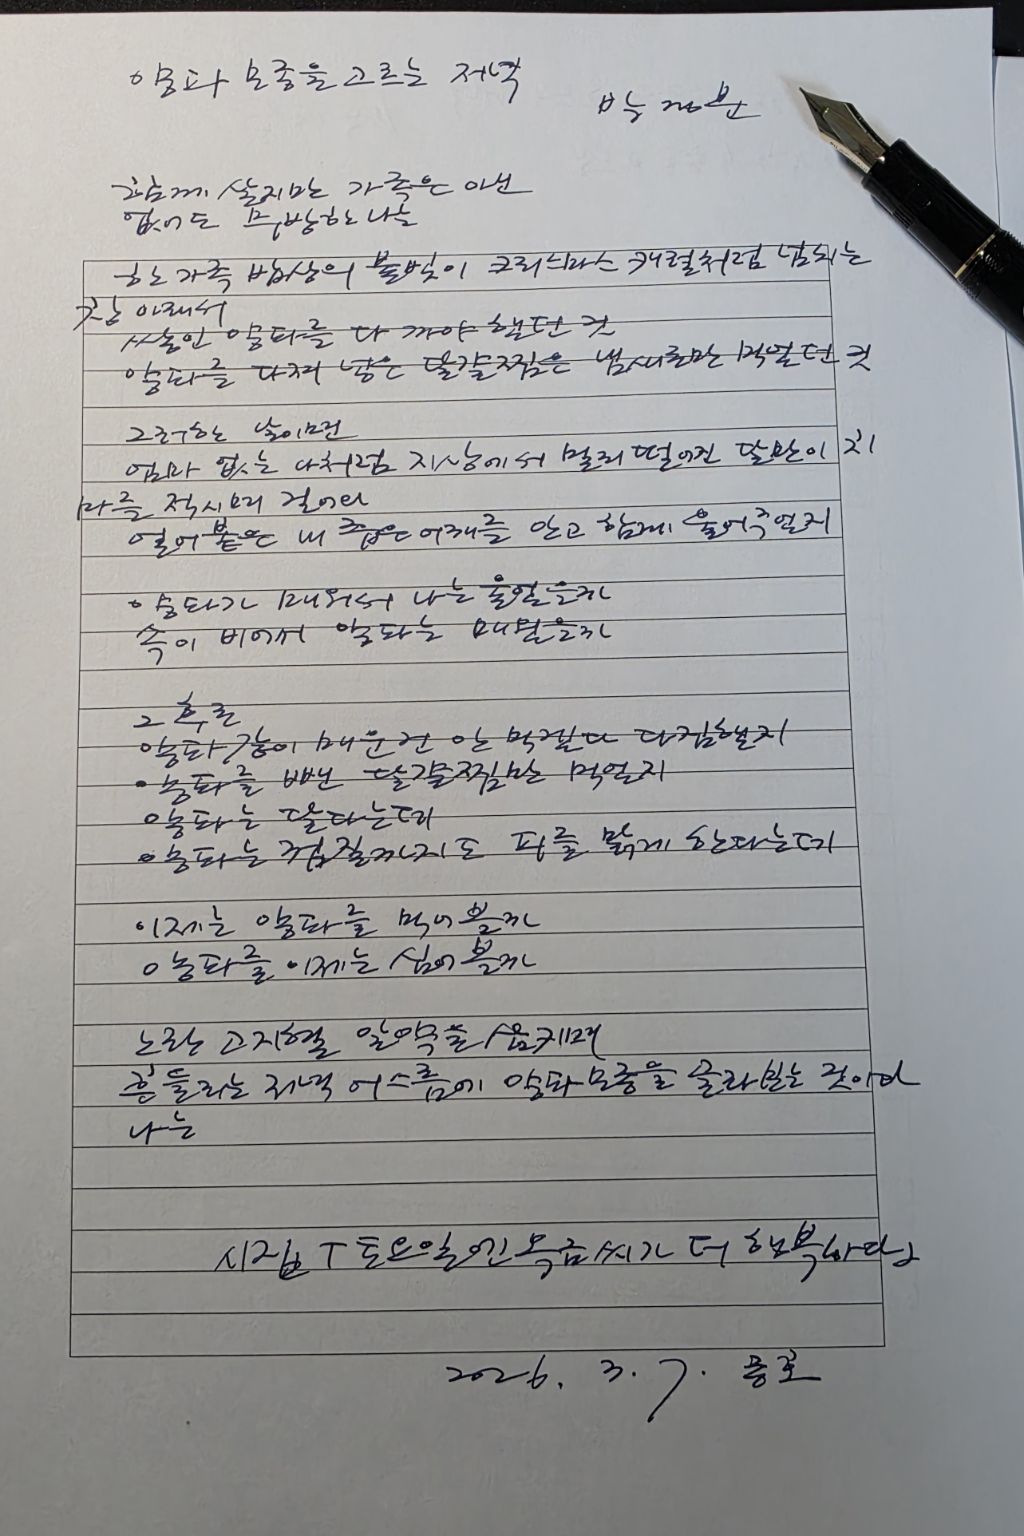 양파 모종을 고르는 저녁
박경분
함께 살지만 가족은 아닌
없어도 무방한 나는
한 가족 밥상의 불빛이 크리스마스 캐럴처럼 넘치는
창 아래서
싸놓인 양파를 다 까야 했던 것
양파를 다져 넣은 달걀찜은 냄새로만 먹었던 것
그러한 날이면
엄마 없는 나처럼 지상에서 멀리 떨어진 달만이 치
마를 적시며 걸어와
얼어붙은 내 좁은 어깨를 안고 함께 울어주었지
양파가 매워서 나는 울었을까
속이 비어서 양파는 매웠을까
그 후론
양파같이 매운 건 안 먹겠다 다짐했지
양파를 뺀 달걀찜만 먹었지
양파는 달다는데
양파는 껍질까지도 피를 맑게 한다는데
이제는 양파를 먹어볼까
양파를 이제는 심어볼까
노란 고지혈 알약을 삼키며
흔들리는 저녁 어스름에 양파 모종을 골라 보는 것이다
나는
시집 「토요일엔 목금씨가 더 행복하다」
2026. 3. 7.